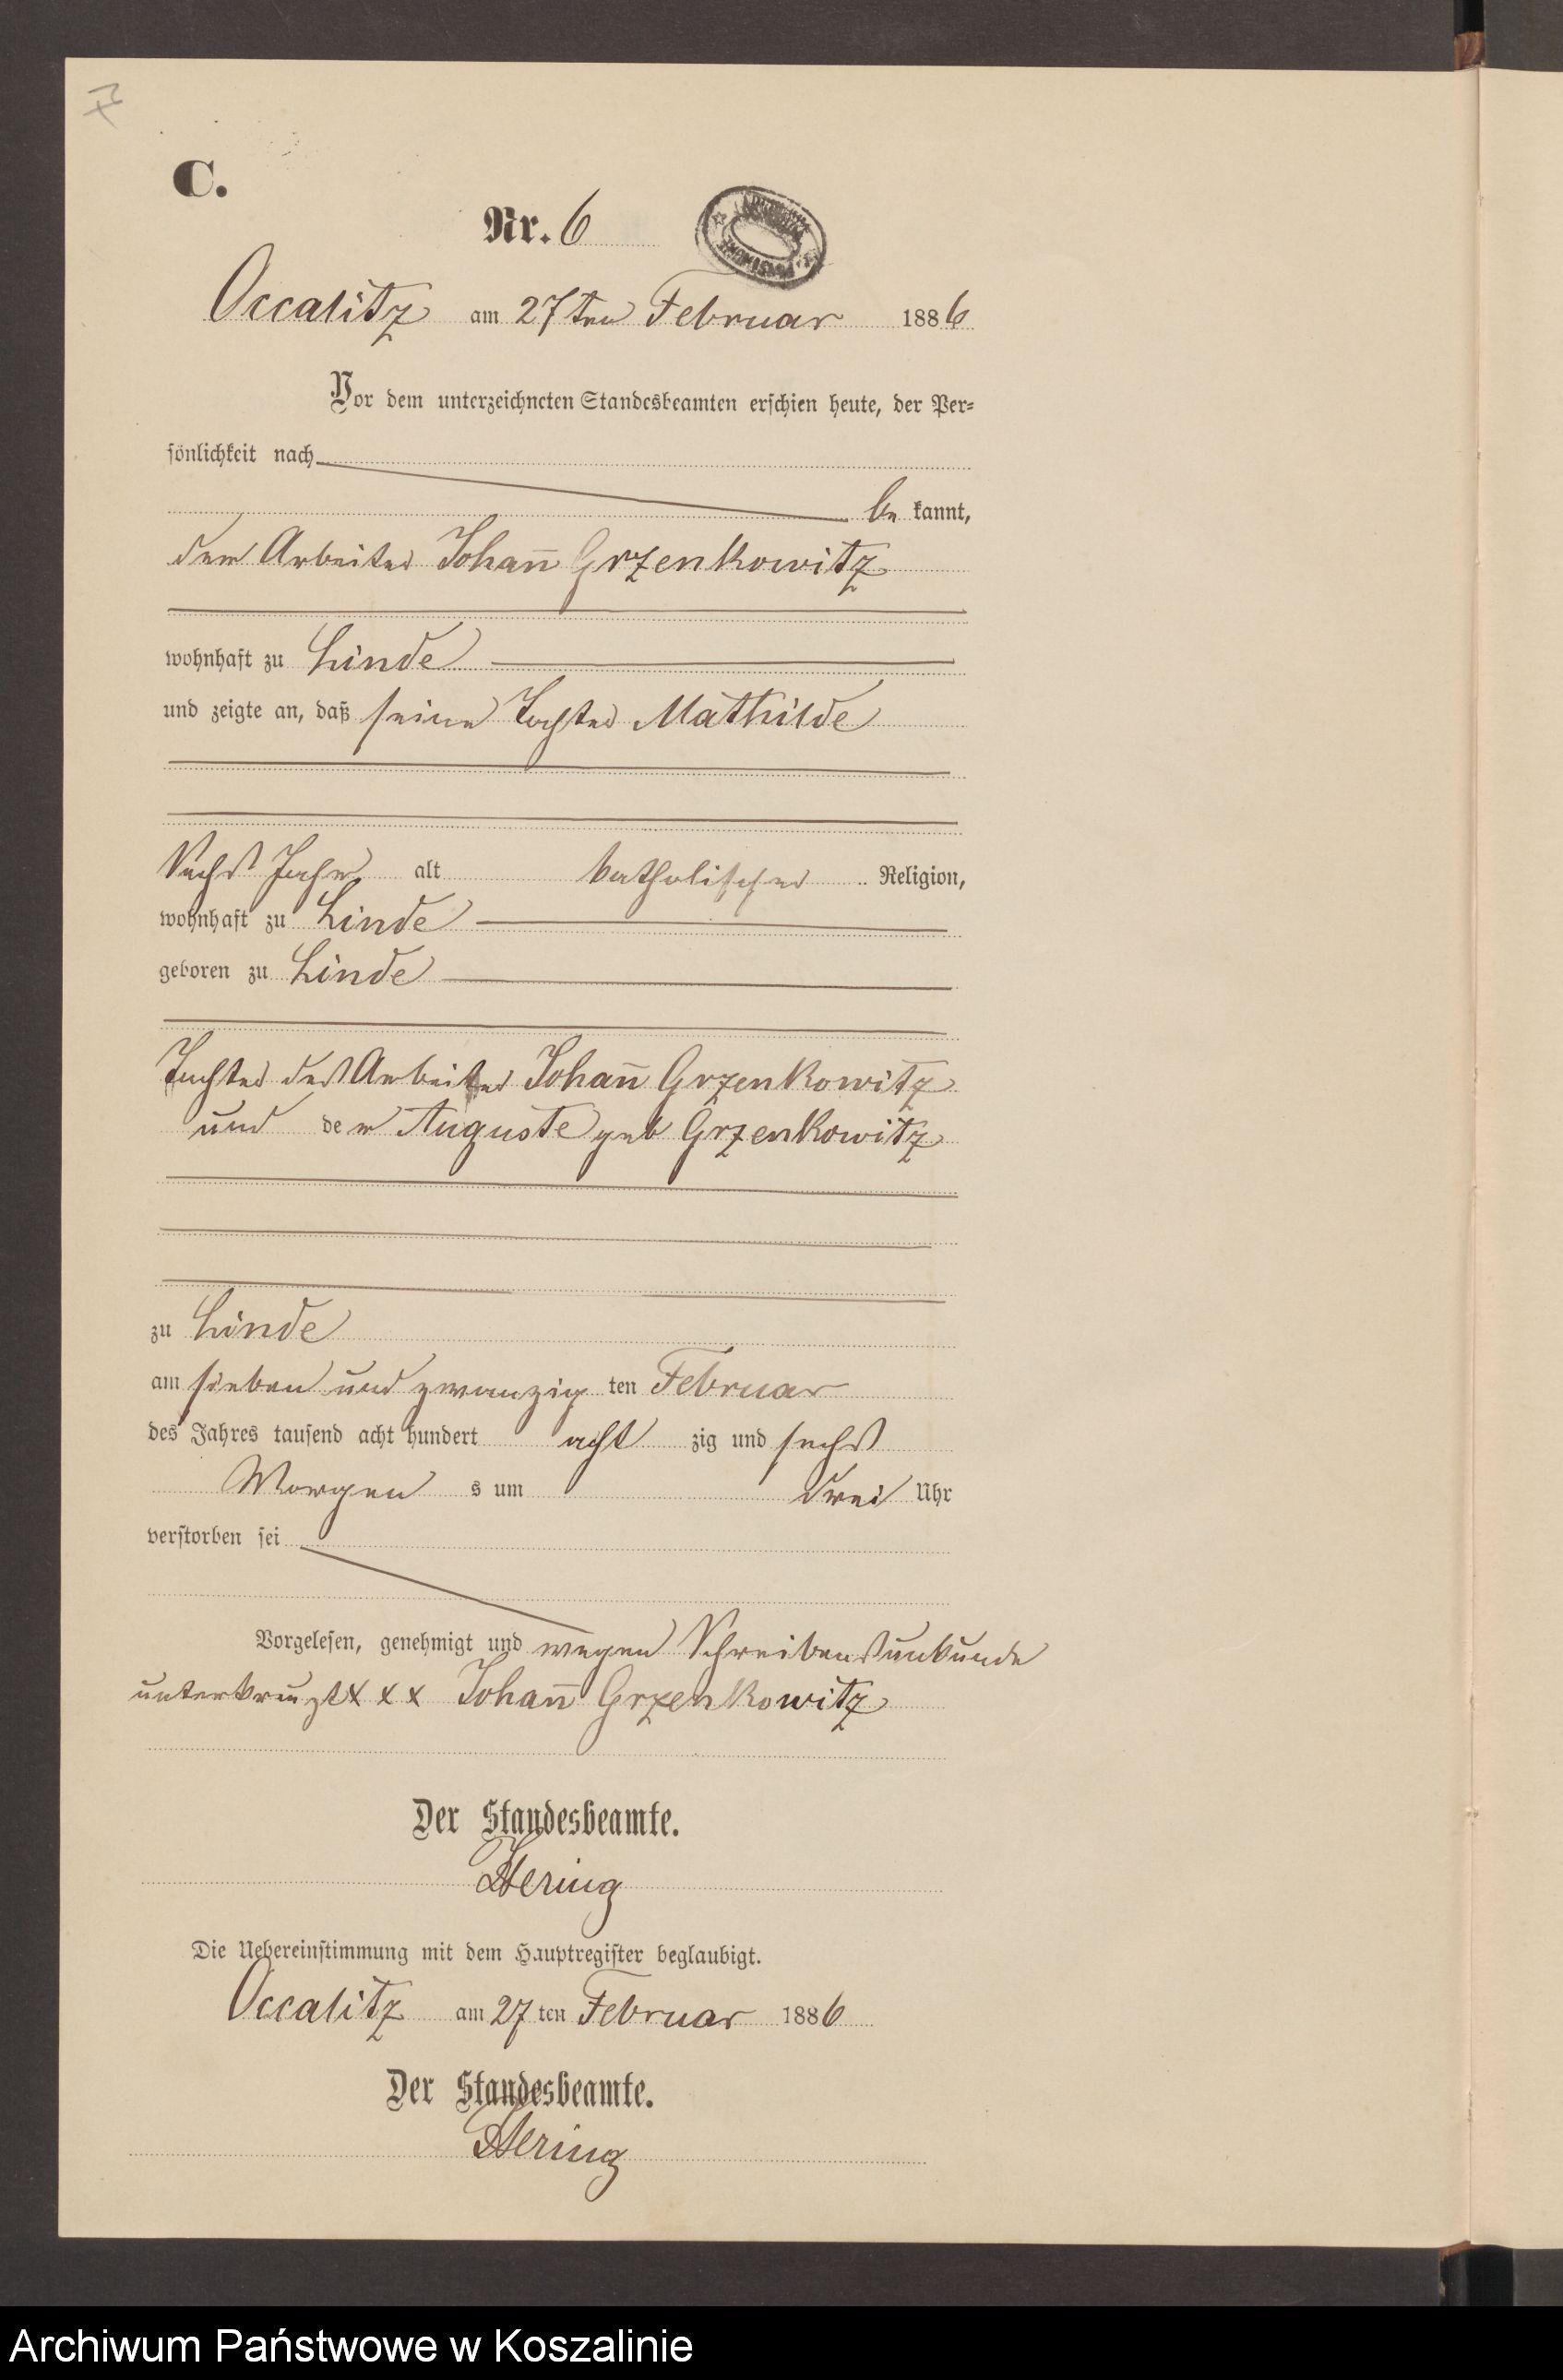 C.
Nr. 6
Occalitz am 27ten Februar 1886
Vor dem unterzeichneten Standesbeamten erschien heute, der Per-
sönlichkeit nach
be kannt,
der Arbeiter Johañ Grzenkowitz
wohnhaft zu Linde
und zeigte an, daß seine Tochter Mathilde
Sechs Jahr alt katholischer Religion,
wohnhaft zu Linde
geboren zu Linde
Tochter des Arbeiter Johañ Grzenkowitz
und der Auguste geb Grzenkowitz
zu Linde
am sieben und zwanzig ten Februar
des Jahres tausend acht hundert acht zig und sechs
Morgen s um drei Uhr
verstorben sei
Vorgelesen, genehmigt und wegen Schreibensunkunde
unterkreuzt x x x Johañ Grzenkowitz
Der Standesbeamte.
Hering
Die Uebereinstimmung mit dem Hauptregister beglaubigt.
Occalitz am 27 ten Februar 1886
Der Standesbeamte.
Hering
Archiwum Państwowe w Koszalinie